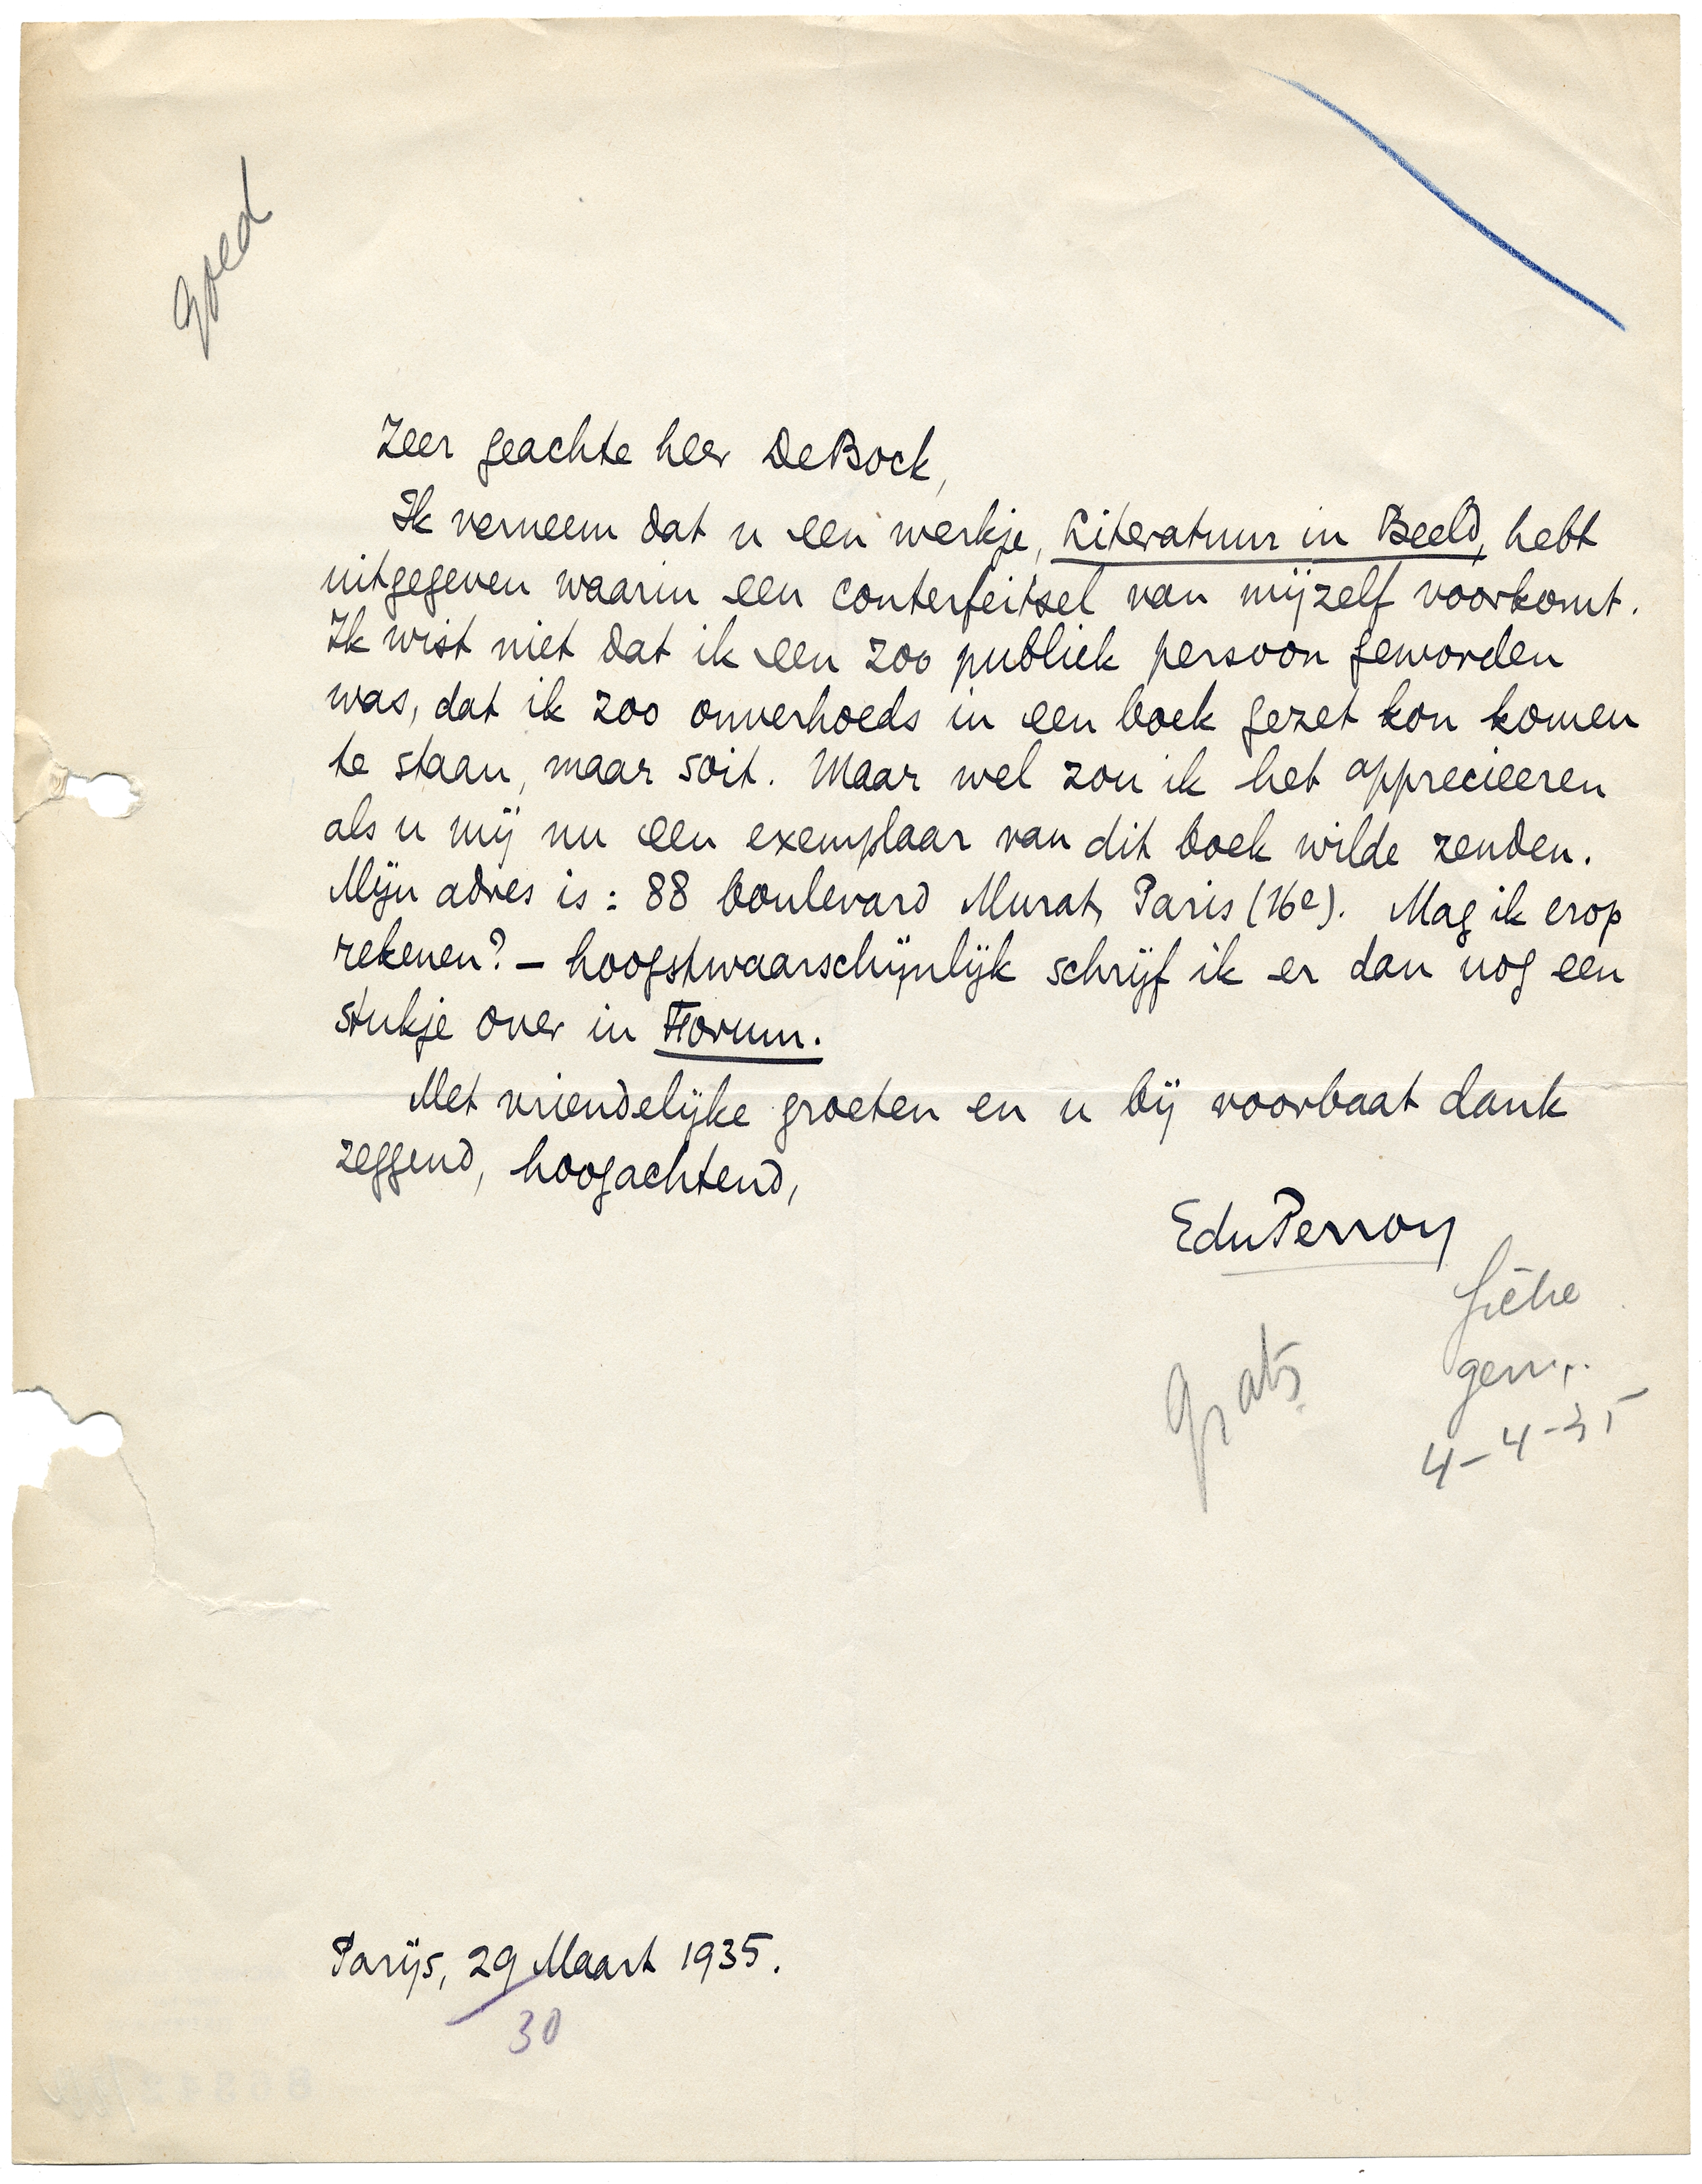 goed
Zeer geachte heer De Bock,
Ik verneem dat u een werkje, Literatuur in Beeld, hebt
uitgegeven waarin een conterfeitsel van mijzelf voorkomt.
Ik wist niet dat ik een zoo publiek persoon geworden
was, dat ik zoo onverhoeds in een boek gezet kon komen
te staan, maar soit. Maar wel zou ik het apprecieeren
als u mij nu een exemplaar van dit boek wilde zenden.
Mijn adres is: 88 boulevard Murat, Paris (16e). Mag ik erop
rekenen? – hoogstwaarschijnlijk schrijf ik er dan nog een
stukje over in Forum.
Met vriendelijke groeten en u bij voorbaat dank
zeggend, hoogachtend,
EduPerron
fiche
gratis
4-4-35
Parijs, 29 Maart 1935.
30